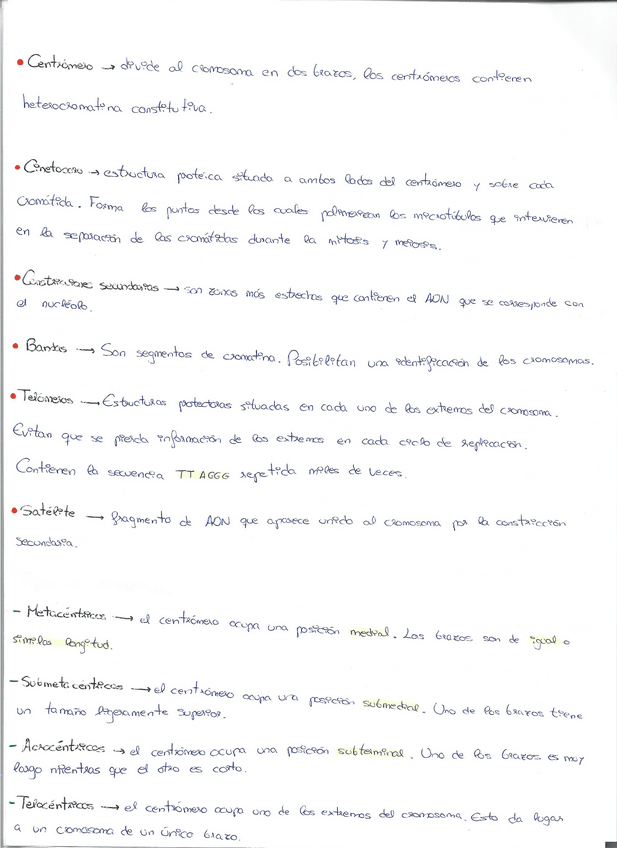 • Centrómero → divide al cromosoma en dos brazos, los centrómeros contienen
heterocromatina constitutiva.
• Cinetocoro → estructura proteica situada a ambos lados del centrómero y sobre cada
cromátida. Forma los puntos desde los cuales polimerizan los microtúbulos que intervienen
en la separación de las cromátidas durante la mitosis y meiosis.
• Constricciones secundarias → son zonas más estrechas que contienen el ADN que se corresponde con
el nucléolo.
• Bandas → Son segmentos de cromatina. Posibilitan una identificación de los cromosomas.
• Telómeros → Estructuras protectoras situadas en cada uno de los extremos del cromosoma.
Evitan que se pierda información de los extremos en cada ciclo de replicación.
Contienen la secuencia TTAGGG repetida miles de veces.
• Satélite → fragmento de ADN que aparece unido al cromosoma por la constricción
secundaria.
- Metacéntricos → el centrómero ocupa una posición medial. Los brazos son de igual o
similar longitud.
- Submetacéntricos → el centrómero ocupa una posición submedial. Uno de los brazos tiene
un tamaño ligeramente superior.
- Acrocéntricos → el centrómero ocupa una posición subterminal. Uno de los brazos es muy
largo mientras que el otro es corto.
- Telocéntricos → el centrómero ocupa uno de los extremos del cromosoma. Esto da lugar
a un cromosoma de un único brazo.